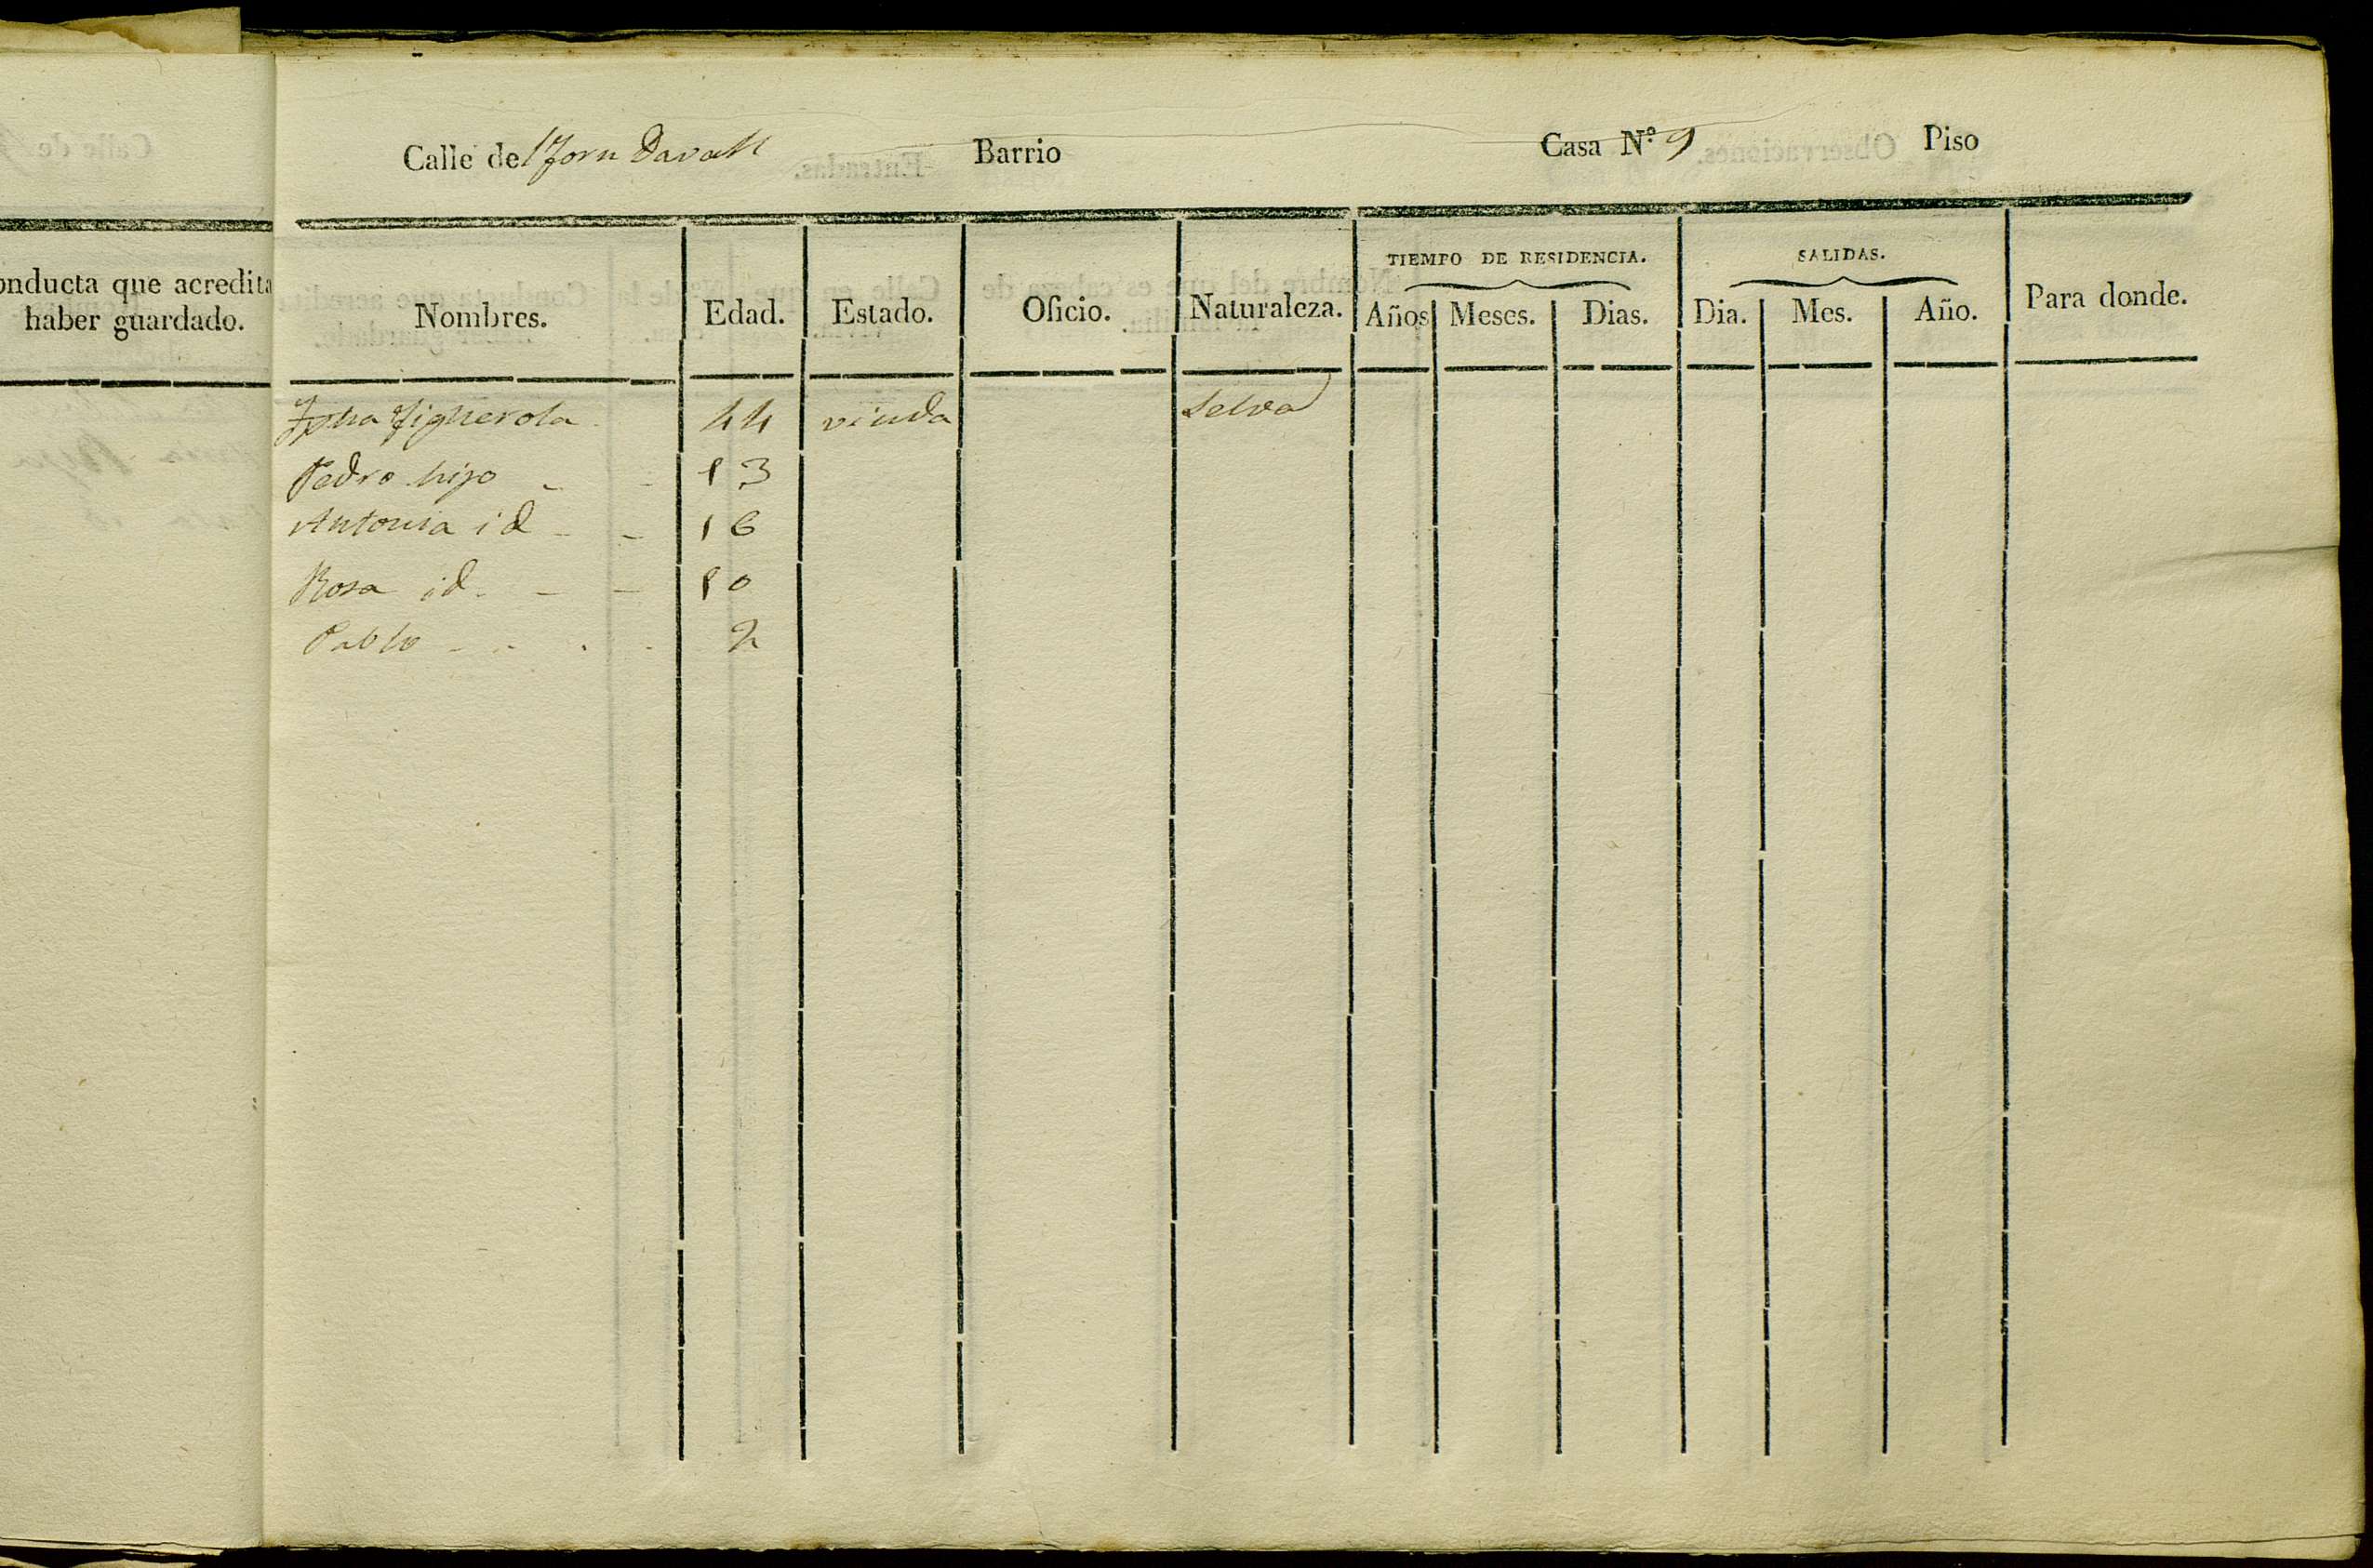 onducta que acredita
haber guardado.
Calle del Forn Davall Barrio Casa N.º 9 Piso
Nombres. Edad. Estado. Oficio. Naturaleza. TIEMPO DE RESIDENCIA. Años Meses. Dias. SALIDAS. Dia. Mes. Año. Para donde.
Figuerola 44 viuda Selva
Pedro hijo - - 13
Antonia id - - 16
Rosa id. - - 10
Pablo - - . . 2